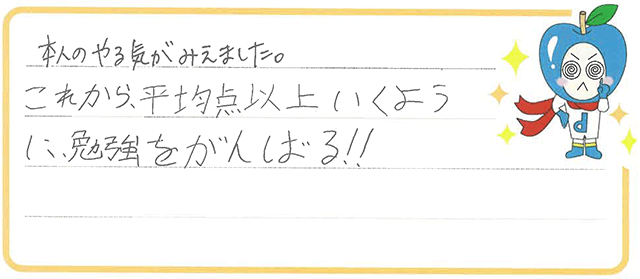 本人のやる気がみえました。
これから、平均点以上いくよう
に、勉強をがんばる!!
d